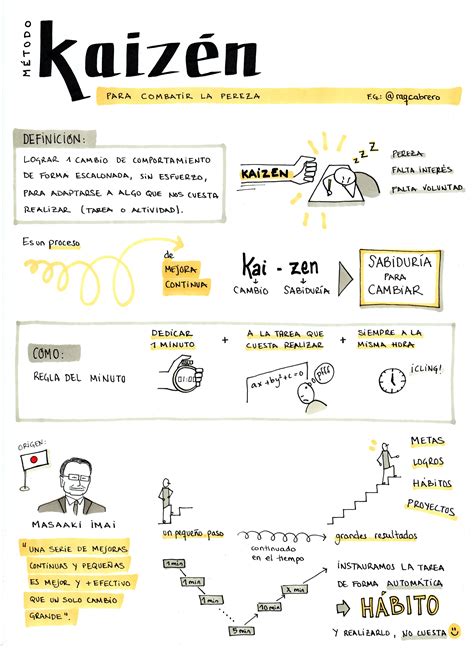 MÉTODO
Kaizén
PARA COMBATIR LA PEREZA
F.G: @mqcabrero
DEFINICIÓN:
LOGRAR 1 CAMBIO DE COMPORTAMIENTO
DE FORMA ESCALONADA, SIN ESFUERZO,
PARA ADAPTARSE A ALGO QUE NOS CUESTA
REALIZAR (TAREA O ACTIVIDAD).
KAIZEN
zzz
PEREZA
FALTA INTERÉS
FALTA VOLUNTAD
Es un proceso
de
MEJORA
CONTINUA
Kai - zen
CAMBIO SABIDURÍA
SABIDURÍA
PARA
CAMBIAR
COMO:
REGLA DEL MINUTO
DEDICAR
1 MINUTO
01:00
+
A LA TAREA QUE
CUESTA REALIZAR
ax+by²+c=0
pfff
+
SIEMPRE A LA
MISMA HORA
¡CLING!
ORIGEN:
MASAAKI IMAI
"UNA SERIE DE MEJORAS
CONTINUAS Y PEQUEÑAS
ES MEJOR Y + EFECTIVO
QUE UN SOLO CAMBIO
GRANDE".
METAS
LOGROS
HÁBITOS
PROYECTOS
un pequeño paso
continuado
en el tiempo
grandes resultados
1 min
1 min
1 min
5 min
10 min
x min
INSTAURAMOS LA TAREA
DE FORMA AUTOMÁTICA
HÁBITO
Y REALIZARLO, NO CUESTA